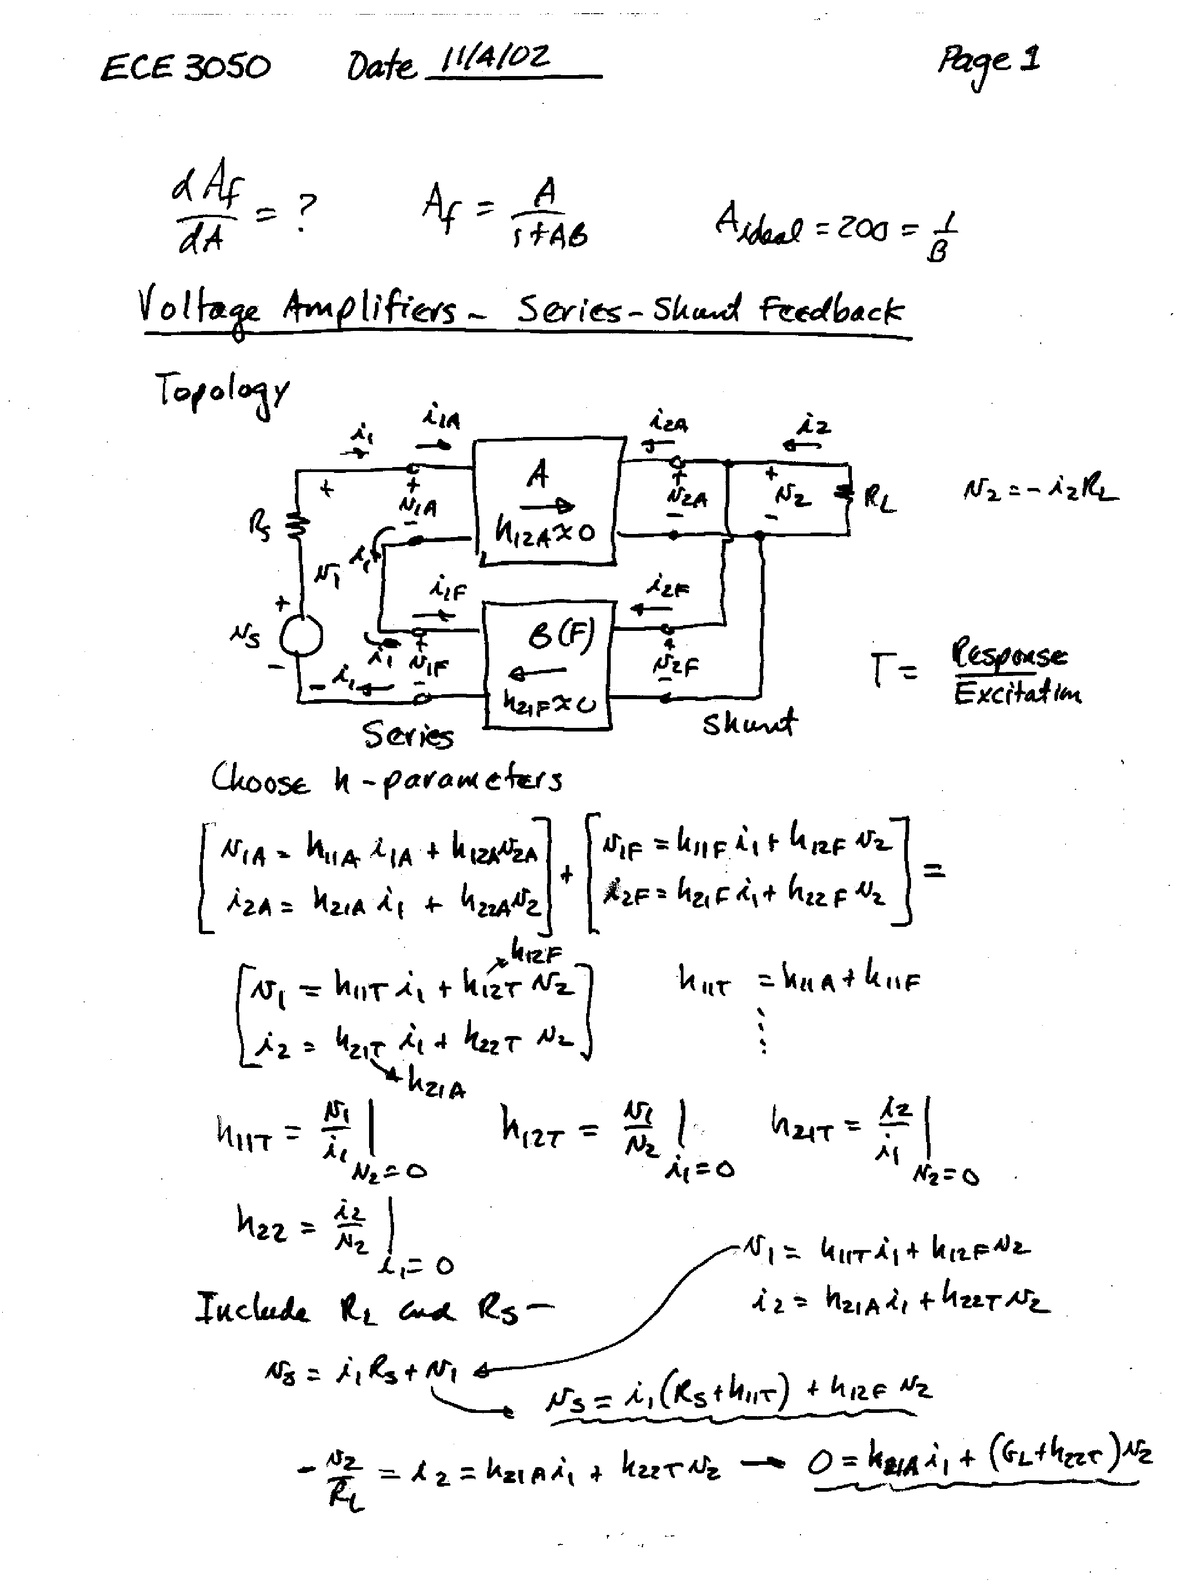 ECE 3050 Date 11/4/02 Page 1
dAf/dA = ? Af = A/(1+AB) Aideal = 200 = 1/B
Voltage Amplifiers - Series-Shunt Feedback
Topology
i1 i1A i2A i2
+ + A + + RL v2 = -i2RL
Rs v1A v2A v2
- h12A≈0 - -
i1
v1 i1F i2F
+ B(F)
vs i1 + v1F + v2F T = Response/Excitation
- - i1 - h21F≈0 -
Series Shunt
Choose h-parameters
[v1A = h11A i1A + h12A v2A] + [v1F = h11F i1 + h12F v2] =
[i2A = h21A i1 + h22A v2] [i2F = h21F i1 + h22F v2]
h12F
[v1 = h11T i1 + h12T v2] h11T = h11A + h11F
[i2 = h21T i1 + h22T v2]
h21A
h11T = v1/i1 | v2=0 h12T = v1/v2 | i1=0 h21T = i2/i1 | v2=0
h22 = i2/v2 | i1=0
v1 = h11T i1 + h12F v2
i2 = h21A i1 + h22T v2
Include RL and Rs -
vs = i1Rs + v1
vs = i1(Rs+h11T) + h12F v2
-v2/RL = i2 = h21A i1 + h22T v2 → 0 = h21A i1 + (GL+h22T)v2